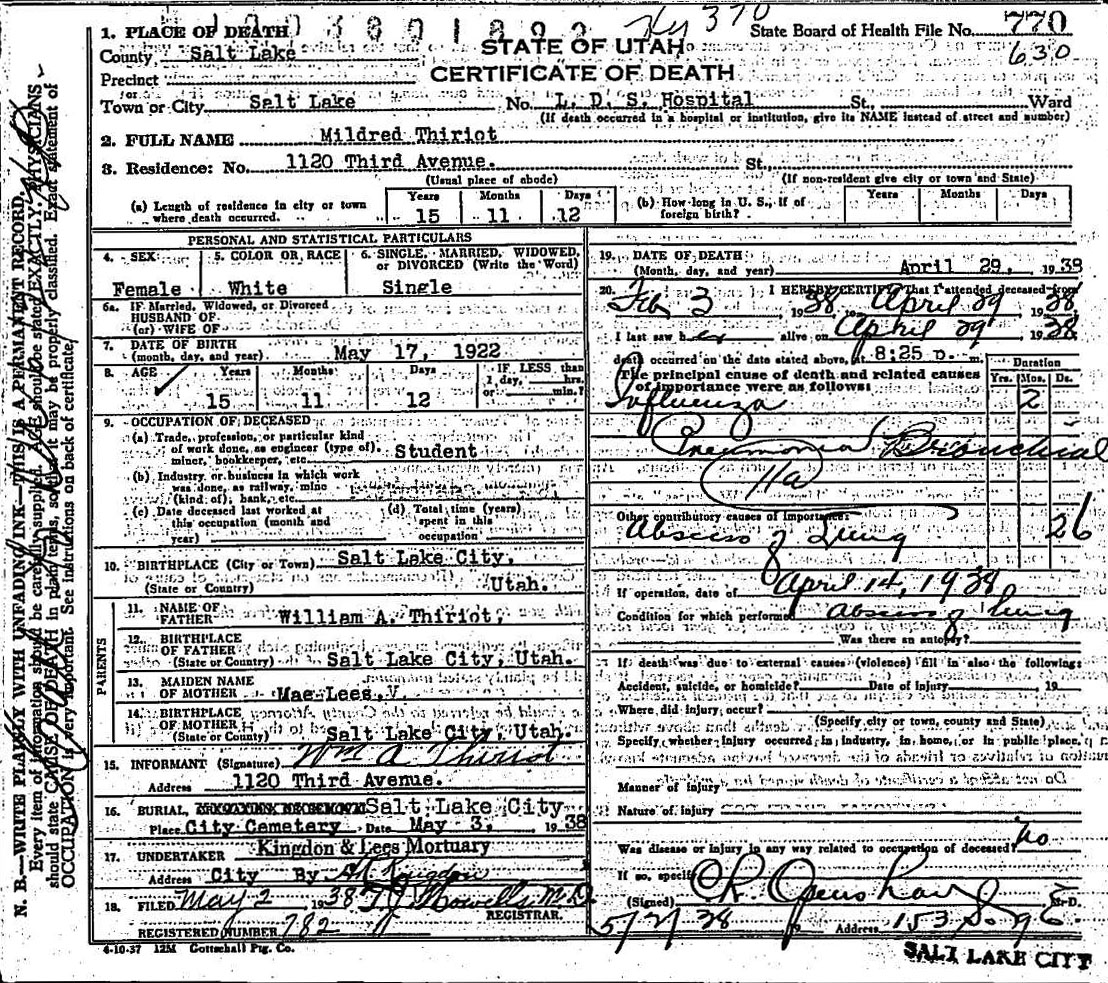 1. PLACE OF DEATH
Hy 370
State Board of Health File No. 770
630
County Salt Lake
STATE OF UTAH
Precinct
CERTIFICATE OF DEATH
Town or City Salt Lake No. L. D. S. Hospital St., Ward
(If death occurred in a hospital or institution, give its NAME instead of street and number)
2. FULL NAME Mildred Thiriot
3. Residence: No. 1120 Third Avenue. St.
(Usual place of abode) (If non-resident give city or town and State)
(a) Length of residence in city or town where death occurred. Years 15 Months 11 Days 12
(b) How long in U. S., if of foreign birth? Years Months Days
N. B.—WRITE PLAINLY WITH UNFADING INK—THIS IS A PERMANENT RECORD.
Every item of information should be carefully supplied. AGE should be stated EXACTLY. PHYSICIANS
should state CAUSE OF DEATH in plain terms, so that it may be properly classified. Exact statement of
OCCUPATION is very important. See instructions on back of certificate.
PERSONAL AND STATISTICAL PARTICULARS
4. SEX
Female
5. COLOR OR RACE
White
6. SINGLE, MARRIED, WIDOWED,
or DIVORCED (Write the Word)
Single
6a. IF Married, Widowed, or Divorced
HUSBAND OF
(or) WIFE OF
7. DATE OF BIRTH
(month, day, and year) May 17, 1922
8. AGE Years Months Days IF LESS than
1 day, hrs.
or min.?
15 11 12
9. OCCUPATION OF DECEASED
(a) Trade, profession, or particular kind
of work done, as engineer (type of), Student
miner, bookkeeper, etc.
(b) Industry or business in which work
was done, as railway, mine
(kind of), bank, etc.
(c) Date deceased last worked at
this occupation (month and
year)
(d) Total time (years)
spent in this
occupation
10. BIRTHPLACE (City or Town) Salt Lake City,
(State or Country) Utah.
PARENTS
11. NAME OF
FATHER William A. Thiriot,
12. BIRTHPLACE
OF FATHER
(State or Country) Salt Lake City, Utah.
13. MAIDEN NAME
OF MOTHER Mae Lees V
14. BIRTHPLACE
OF MOTHER
(State or Country) Salt Lake City, Utah.
15. INFORMANT (Signature) Wm A Thiriot
Address 1120 Third Avenue.
16. BURIAL, Salt Lake City
Place City Cemetery Date May 3, 1938
17. UNDERTAKER Kingdon & Lees Mortuary
Address City By Kingdon
18. FILED May 2 1938 T J Howells M.D.
REGISTRAR.
REGISTERED NUMBER 782
4-10-37 12M Gottschall Ptg. Co.
19. DATE OF DEATH
(Month, day, and year) April 29, 1938
20. I HEREBY CERTIFY That I attended deceased from
Feb 3 1938, to April 29 1938,
I last saw her alive on April 29 1938
death occurred on the date stated above, at 8:25 p. m.
The principal cause of death and related causes
of importance were as follows:
Duration
Yrs. Mos. Ds.
Influenza 2
Pneumonia Bronchial
11a
Other contributory causes of importance:
Abscess of Lung 26
If operation, date of April 14, 1938
Condition for which performed Abscess of lung
Was there an autopsy?
If death was due to external causes (violence) fill in also the following:
Accident, suicide, or homicide? Date of injury 19
Where did injury occur?
(Specify city or town, county and State)
Specify whether injury occurred in industry, in home, or in public place,
Manner of injury
Nature of injury
Was disease or injury in any way related to occupation of deceased? No
If so, specify
(Signed) C R Openshaw M.D.
5/2/38 19 Address 153 So. 9 E.
SALT LAKE CITY